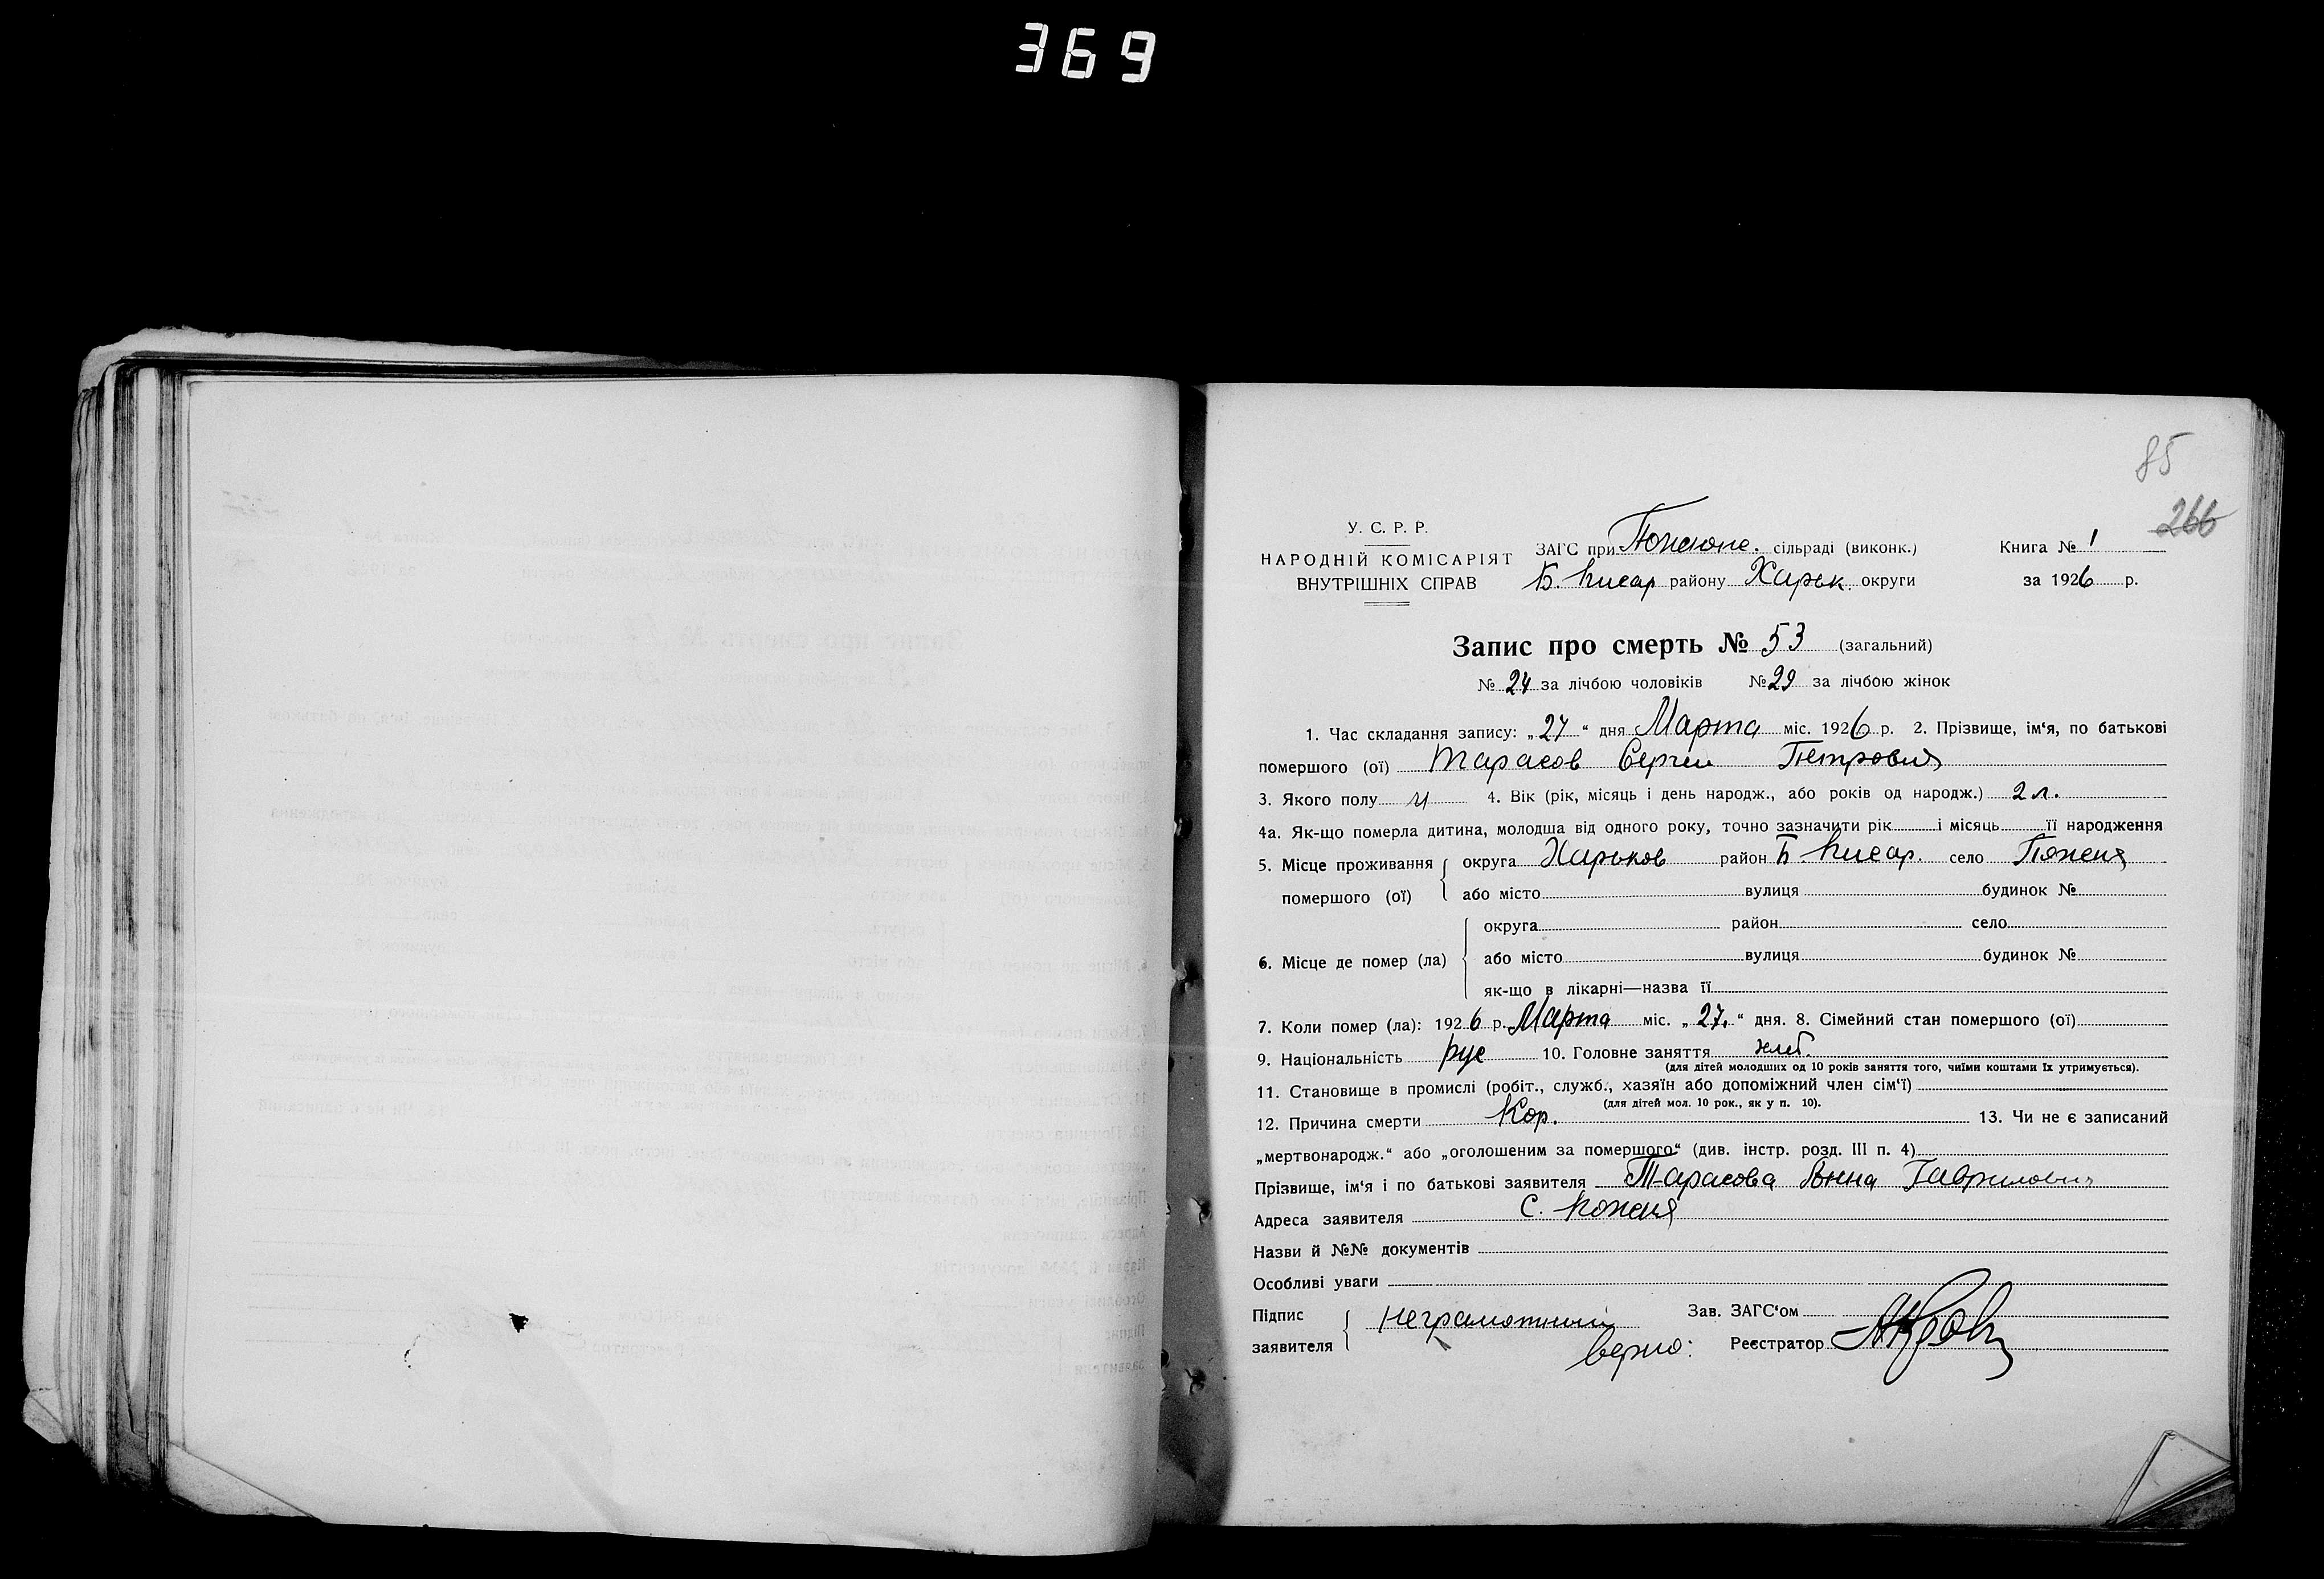 369
85
266
У. С. Р. Р.
НАРОДНІЙ КОМІСАРІЯТ
ВНУТРІШНІХ СПРАВ
ЗАГС при сільраді (виконк.)
Б. Писар району Харьк. округи
Книга № 1
за 1926 р.
Запис про смерть № 53 (загальний)
№ 24 за лічбою чоловіків № 29 за лічбою жінок
1. Час складання запису: „27“ дня Марта міс. 1926 р. 2. Прізвище, ім‘я, по батькові
помершого (ої) Тарасов Сергей Петрович
3. Якого полу м 4. Вік (рік, місяць і день народж., або років од народж.) 2 л.
4а. Як-що померла дитина, молодша від одного року, точно зазначити рік і місяць її народження
5. Місце проживання помершого (ої) округа Харьков район Б Писар. село
або місто вулиця будинок №
6. Місце де помер (ла) округа район село
або місто вулиця будинок №
як-що в лікарні—назва її
7. Коли помер (ла): 1926 р. Марта міс. „27.“ дня. 8. Сімейний стан помершого (ої)
9. Національність рус 10. Головне заняття хлеб.
(для дітей молодших од 10 років заняття того, чиїми коштами їх утримується).
11. Становище в промислі (робіт., служб., хазяїн або допоміжний член сім‘ї)
(для дітей мол. 10 рок., як у п. 10).
12. Причина смерти Кор. 13. Чи не є записаний
„мертвонародж.“ або „оголошеним за помершого“ (див. інстр. розд. III п. 4)
Прізвище, ім‘я і по батькові заявителя Тарасова Анна
Адреса заявителя С.
Назви й №№ документів
Особливі уваги
Підпис заявителя неграмотный
Зав. ЗАГС‘ом
верно: Реєстратор